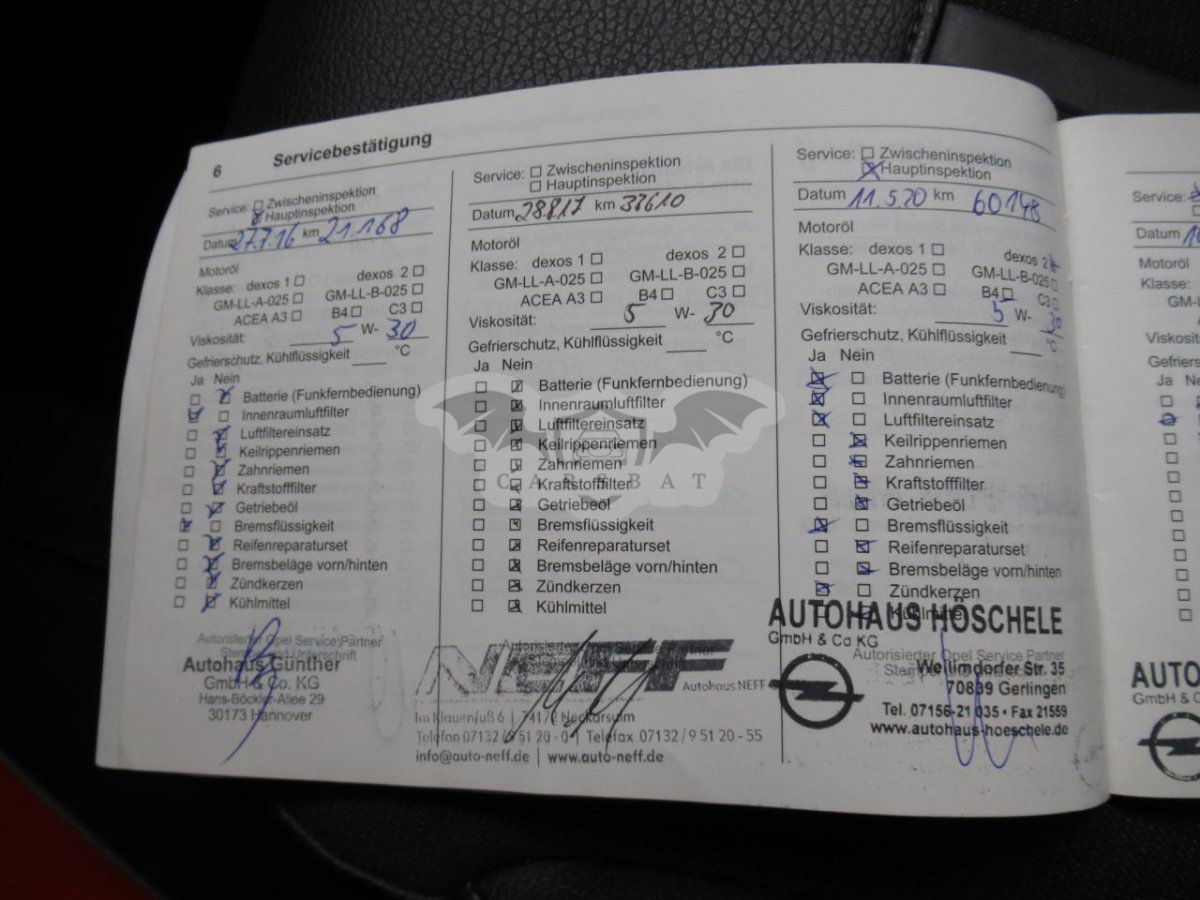 6 Servicebestätigung
Service: Zwischeninspektion
Hauptinspektion
Datum 27.7.16 km 21.168
Motoröl
Klasse: dexos 1 dexos 2
GM-LL-A-025 GM-LL-B-025
ACEA A3 B4 C3
Viskosität: 5 W- 30
Gefrierschutz, Kühlflüssigkeit °C
Ja Nein
Batterie (Funkfernbedienung)
Innenraumluftfilter
Luftfiltereinsatz
Keilrippenriemen
Zahnriemen
Kraftstofffilter
Getriebeöl
Bremsflüssigkeit
Reifenreparaturset
Bremsbeläge vorn/hinten
Zündkerzen
Kühlmittel
Autorisierter Opel Service Partner
Stempel und Unterschrift
Autohaus Günther
GmbH & Co. KG
Hans-Böckler-Allee 29
30173 Hannover
Service: Zwischeninspektion
Hauptinspektion
Datum 28.8.17 km 37610
Motoröl
Klasse: dexos 1 dexos 2
GM-LL-A-025 GM-LL-B-025
ACEA A3 B4 C3
Viskosität: 5 W- 30
Gefrierschutz, Kühlflüssigkeit °C
Ja Nein
Batterie (Funkfernbedienung)
Innenraumluftfilter
Luftfiltereinsatz
Keilrippenriemen
Zahnriemen
Kraftstofffilter
Getriebeöl
Bremsflüssigkeit
Reifenreparaturset
Bremsbeläge vorn/hinten
Zündkerzen
Kühlmittel
Autorisierter Opel Service Partner
NEFF
Autohaus NEFF
Im Klauenfuß 6 | 74172 Neckarsulm
Telefon 07132/9 51 20 - 0 | Telefax 07132/9 51 20 - 55
info@auto-neff.de | www.auto-neff.de
Service: Zwischeninspektion
Hauptinspektion
Datum 11.5.20 km 60148
Motoröl
Klasse: dexos 1 dexos 2
GM-LL-A-025 GM-LL-B-025
ACEA A3 B4 C3
Viskosität: 5 W- 30
Gefrierschutz, Kühlflüssigkeit °C
Ja Nein
Batterie (Funkfernbedienung)
Innenraumluftfilter
Luftfiltereinsatz
Keilrippenriemen
Zahnriemen
Kraftstofffilter
Getriebeöl
Bremsflüssigkeit
Reifenreparaturset
Bremsbeläge vorn/hinten
Zündkerzen
Kühlmittel
AUTOHAUS HÖSCHELE
GmbH & Co KG
Autorisierter Opel Service Partner
Stempel und
Weilimdorfer Str. 35
70839 Gerlingen
Tel. 07156-21 035 • Fax 21559
www.autohaus-hoeschele.de
Service:
Datum
Motoröl
Klasse:
GM-L
Viskosit
Gefriers
Ja N
AUTO
GmbH &
CARSBAT